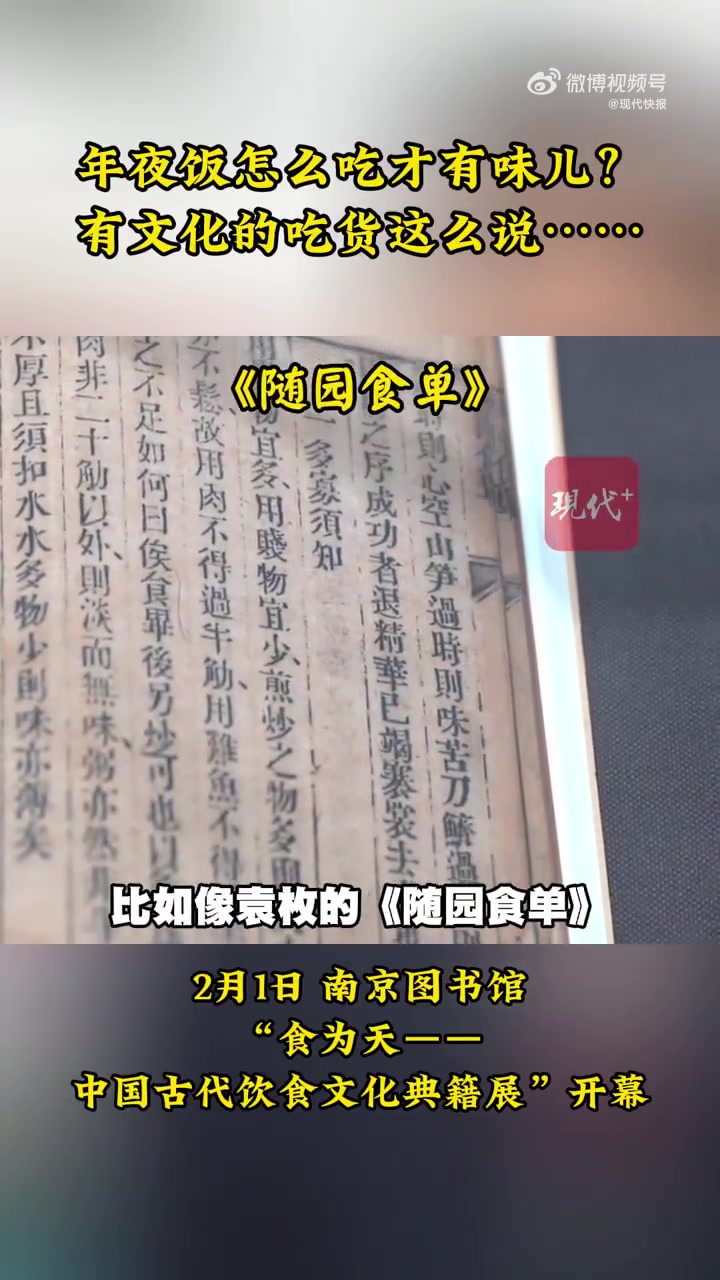 微博视频号
@现代快报
年夜饭怎么吃才有味儿？
有文化的吃货这么说……
《随园食单》
現代+
時則心空山笋過時則味苦刀鱭過
之序成功者退精華已竭褰裳去
多寡須知
物宜多、用賤物宜少、煎炒之物多
不鬆故用肉不得過半觔、用雞魚不得
之不足如何曰俟食畢後另炒可也以
肉非二十觔以外、則淡而無味、粥亦然
不厚且須扣水水多物少則味亦薄矣
比如像袁枚的《随园食单》
2月1日 南京图书馆
“食为天——
中国古代饮食文化典籍展”开幕